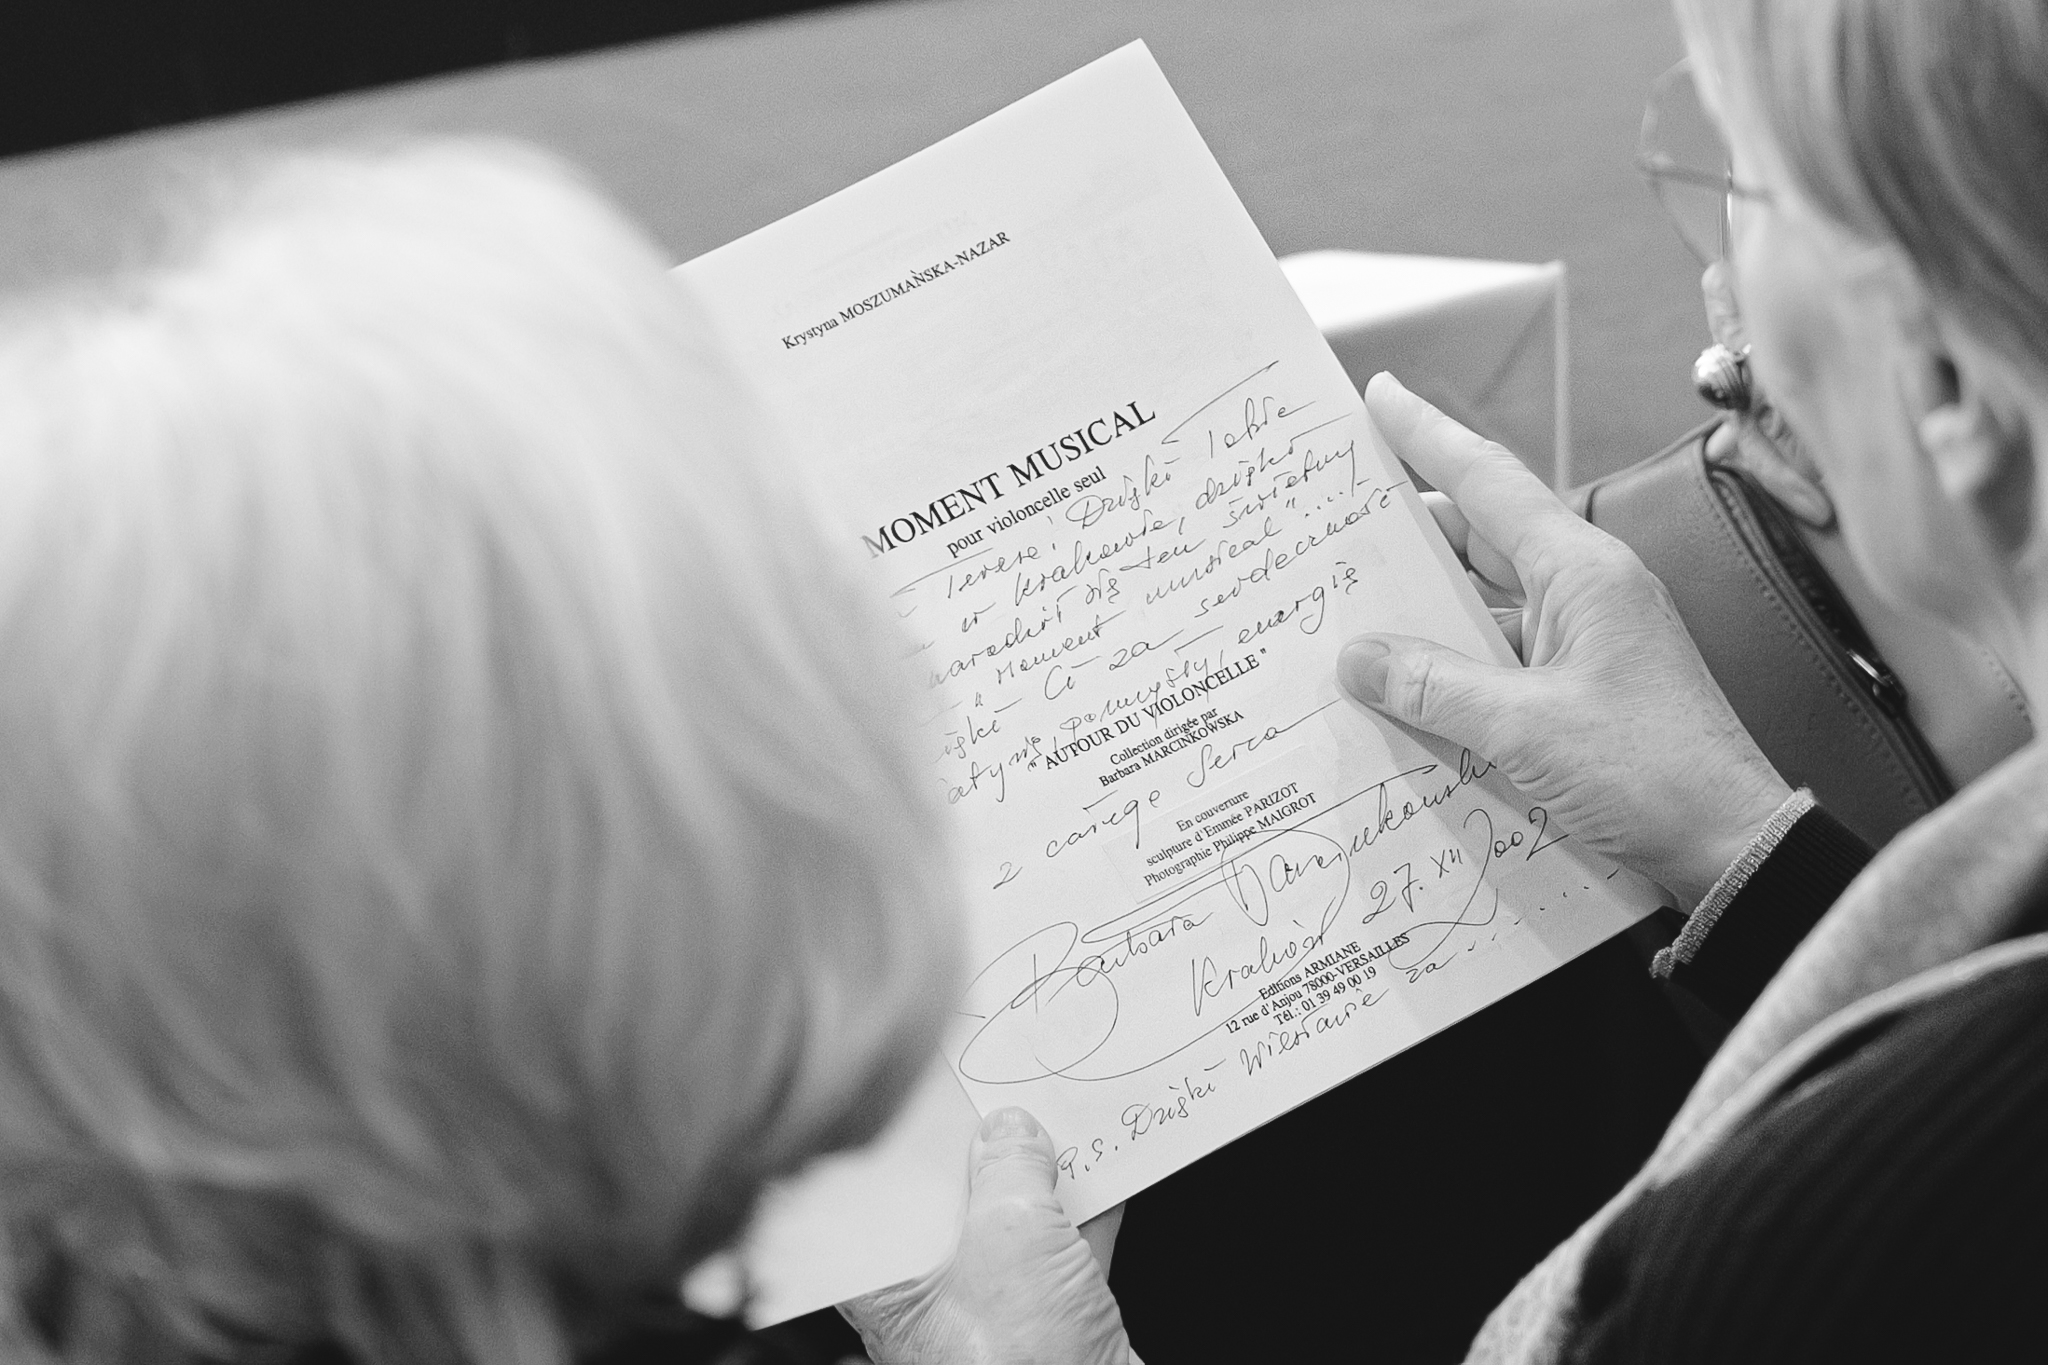 Krystyna MOSZUMAŃSKA-NAZAR
MOMENT MUSICAL
pour violoncelle seul
Dzięki Tobie
w Krakowie, dzięki
narodził się ten świetny
" Moment musical "....
Ci za serdeczność
pomysły, energię
" AUTOUR DU VIOLONCELLE "
Collection dirigée par
Barbara MARCINKOWSKA
z całego serca
En couverture
sculpture d'Emmée PARIZOT
Photographie Philippe MAIGROT
Barbara Marcinkowska
Kraków 27. XII 2002
Editions ARMIANE
12 rue d'Anjou 78000-VERSAILLES
Tél.: 01 39 49 00 19
P.S. Dzięki Wiesławie za